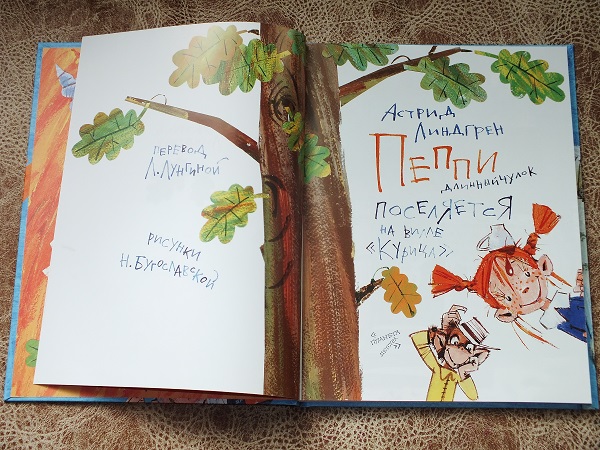 ПЕРЕВОД
Л. ЛУНГИНОЙ
РИСУНКИ
Н. БУГОСЛАВСКОЙ
АСТРИД
ЛИНДГРЕН
ПЕППИ
ДЛИННЫЙЧУЛОК
ПОСЕЛЯЕТСЯ
НА ВИЛЛЕ
«КУРИЦА»